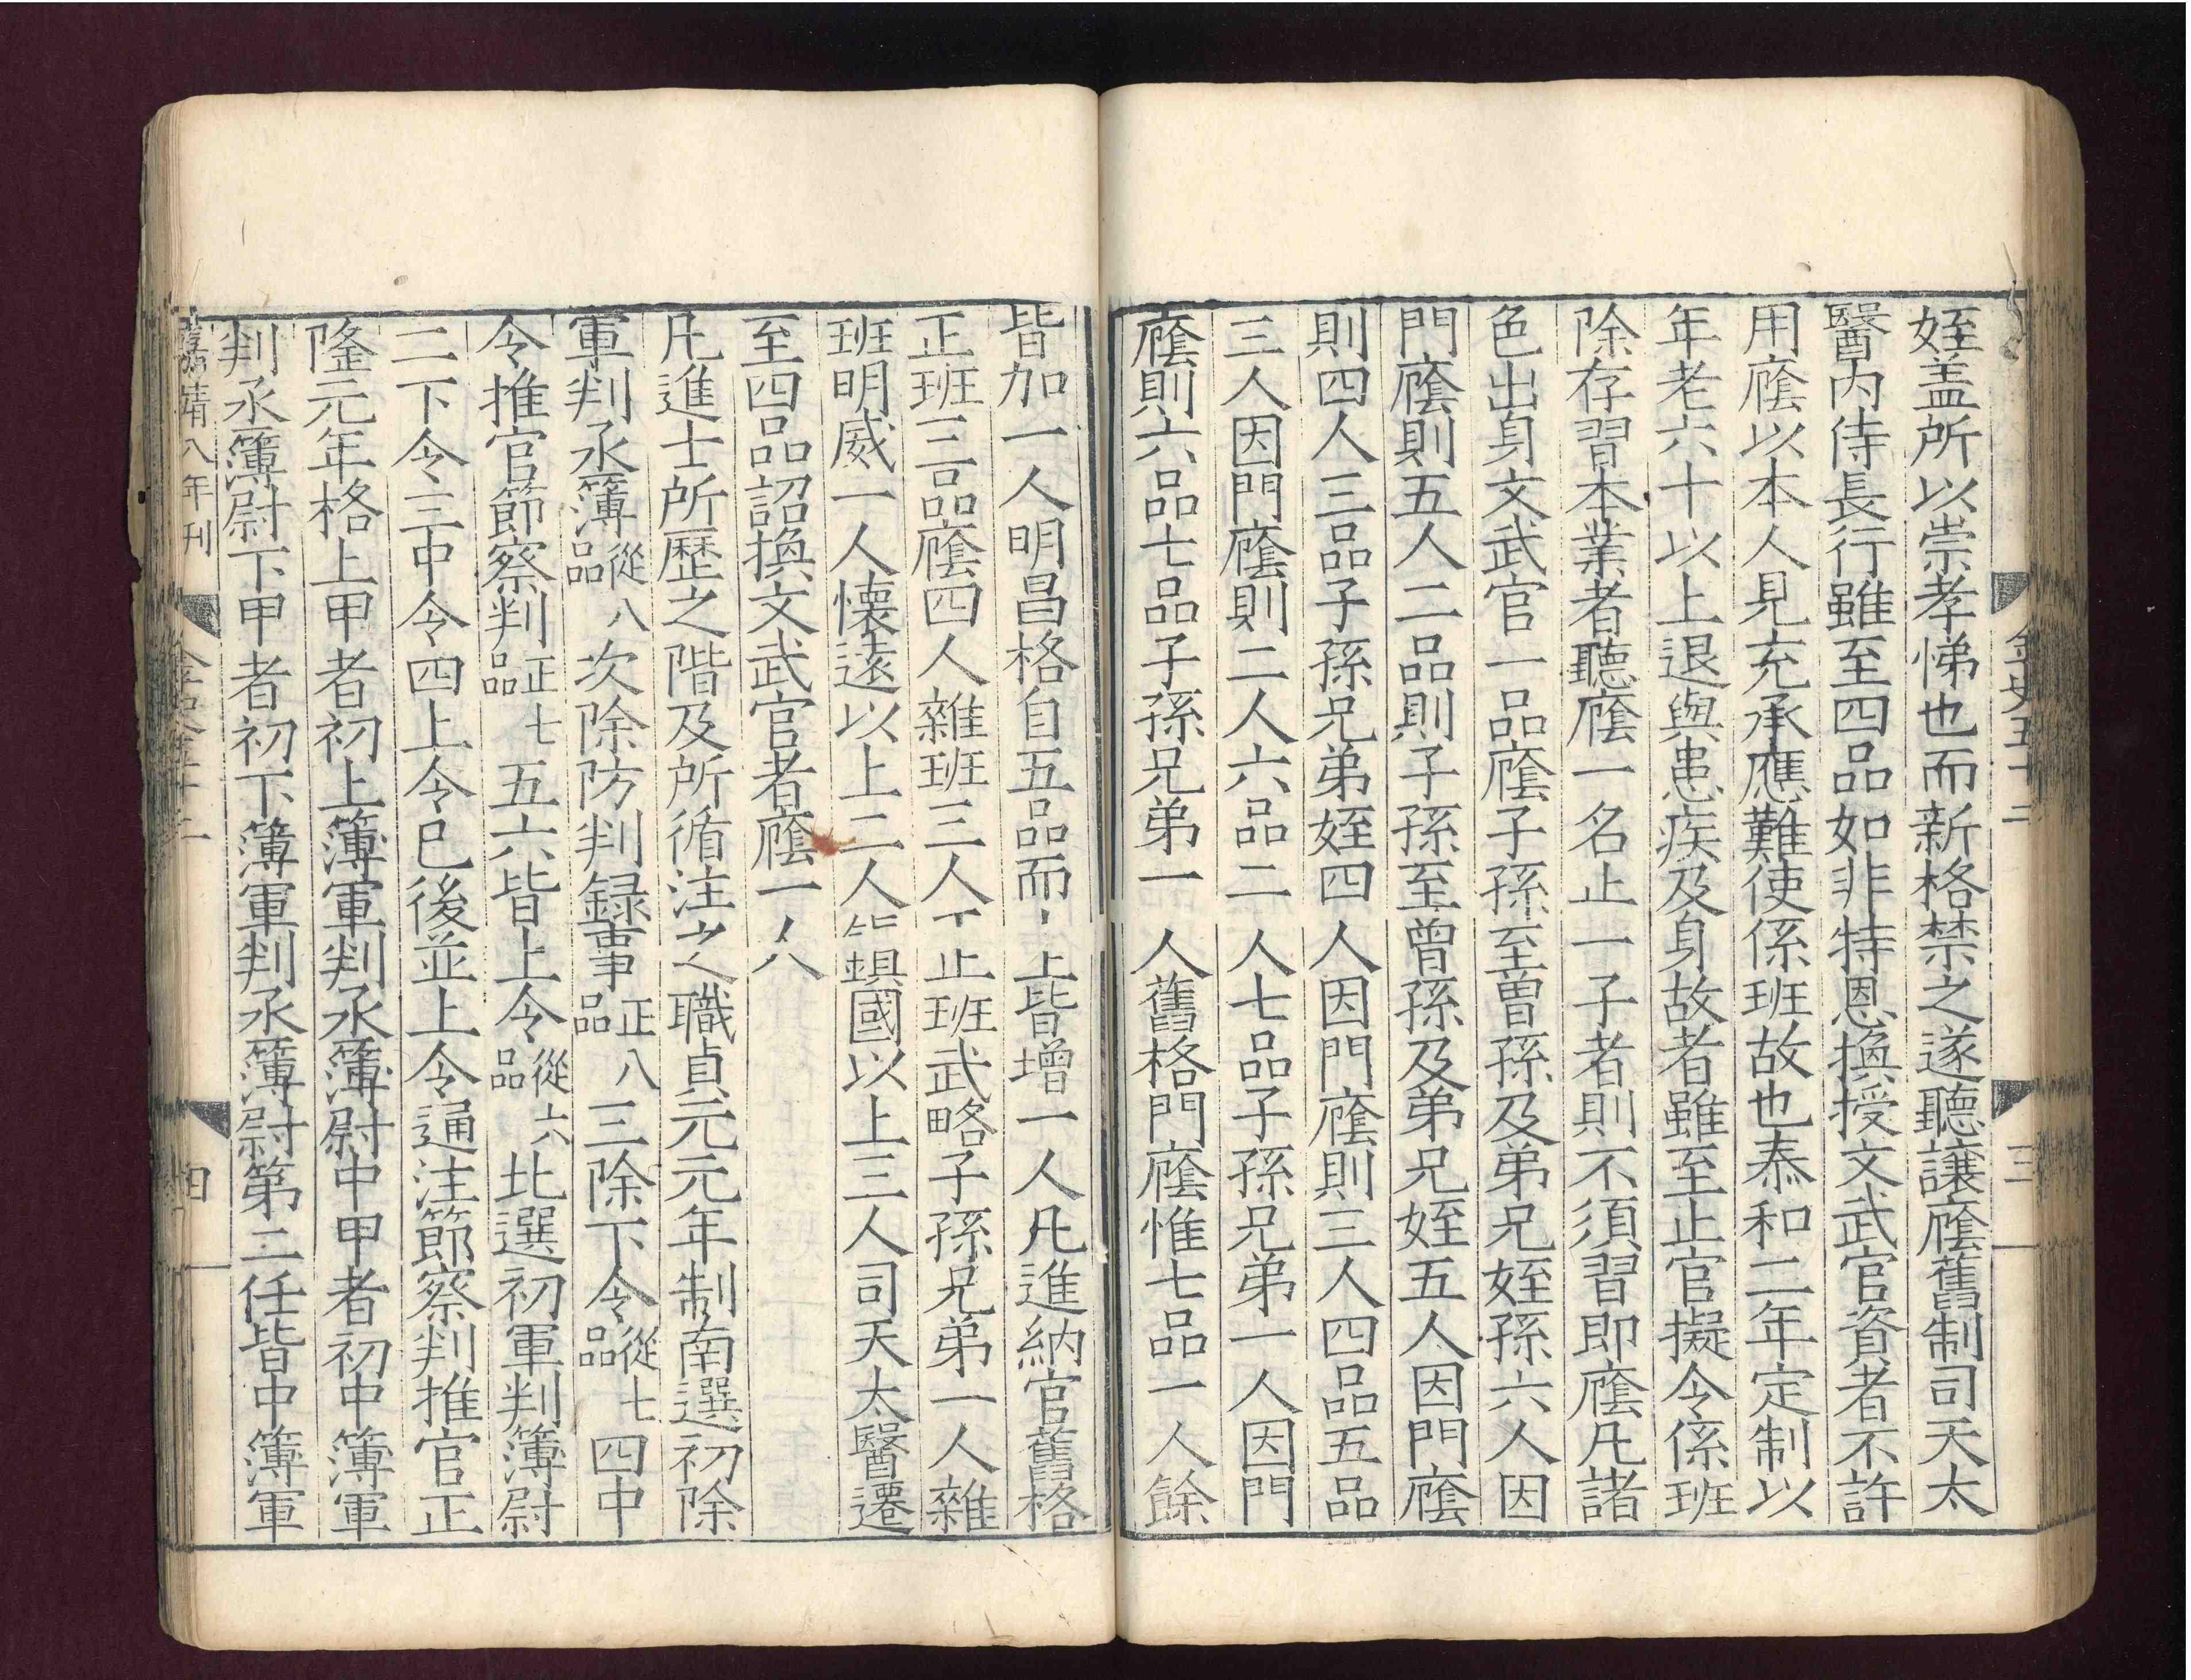 金史五十二
三
姪盖所以崇孝悌也而新格禁之遂聽讓廕舊制司天太
醫内侍長行雖至四品如非特恩換授文武官資者不許
用廕以本人見充承應難使係班故也泰和二年定制以
年老六十以上退與患疾及身故者雖至止官擬令係班
除存習本業者聽廕一名止一子者則不須習即廕凡諸
色出身文武官一品廕子孫至曽孫及弟兄姪孫六人因
門廕則五人二品則子孫至曽孫及弟兄姪五人因門廕
則四人三品子孫兄弟姪四人因門廕則三人四品五品
三人因門廕則二人六品二人七品子孫兄弟一人因門
廕則六品七品子孫兄弟一人舊格門廕惟七品一人餘
皆加一人明昌格自五品而上皆增一人凡進納官舊格
正班三品廕四人雜班三人正班武略子孫兄弟一人雜
班明威一人懷遠以上二人鎮國以上三人司天太醫遷
至四品詔換文武官者廕一人
凡進士所歴之階及所循注之職貞元元年制南選初除
軍判丞簿從八品次除防判録事正八品三除下令從七品四中
令推官節察判正七品五六皆上令從六品北選初軍判簿尉
二下令三中令四上令已後並上令通注節察判推官正
隆元年格上甲者初上簿軍判丞簿尉中甲者初中簿軍
判丞簿尉下甲者初下簿軍判丞簿尉第二任皆中簿軍
靖八年刊
四